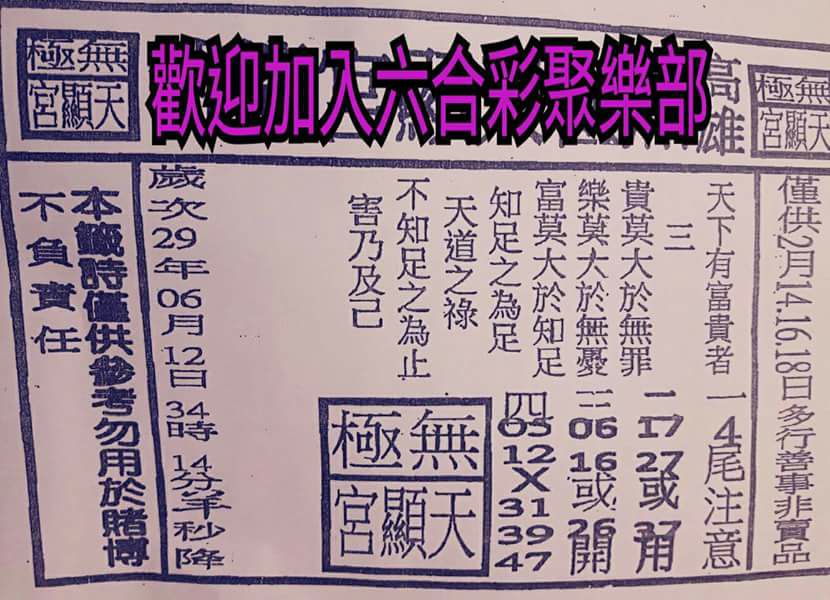 歡迎加入六合彩聚樂部
無極
天顯宮
高雄
無極
天顯宮
僅供2月14.16.18日多行善事非賣品
天下有富貴者
三
貴莫大於無罪
樂莫大於無憂
富莫大於知足
知足之為足
天道之祿
不知足之為止
害乃及己
一4尾注意
二17 27或37用
三06 16或26開
四05 12 X 31 39 47
無極
天顯宮
歲次29年06月12日34時14分羊秒降
本籤詩僅供參考勿用於賭博
不負責任